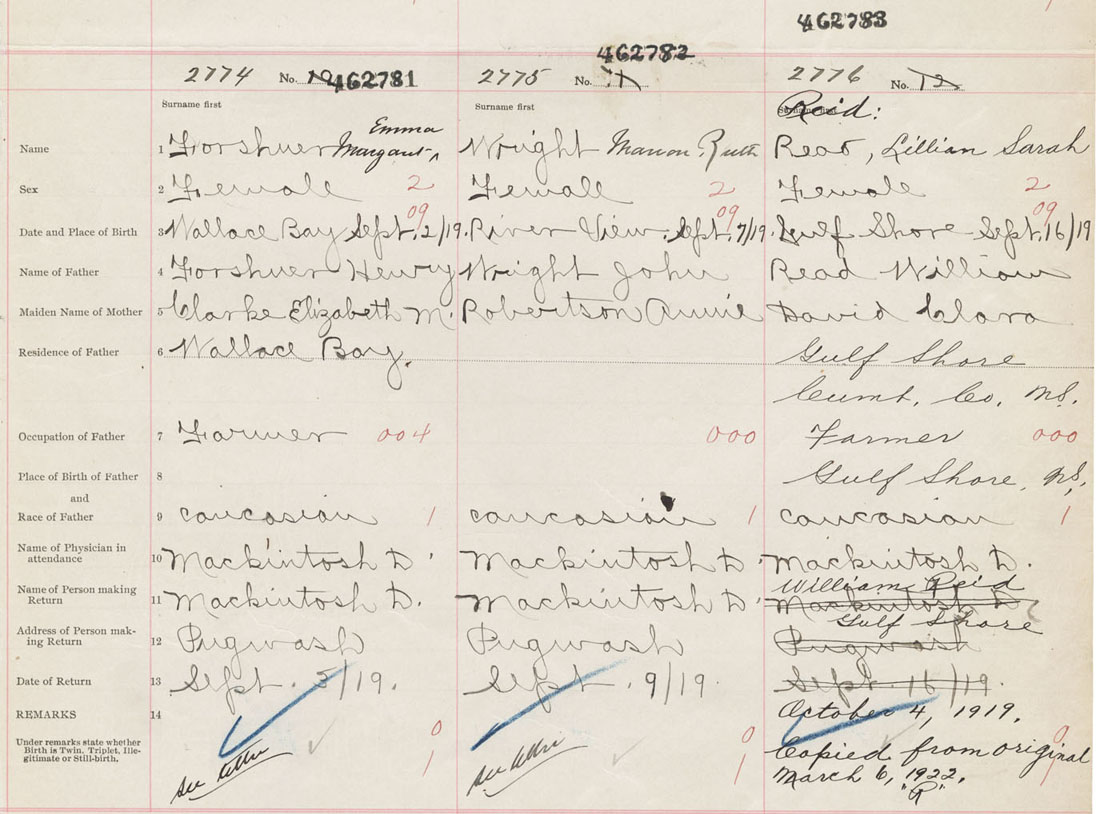 462783
462782
2774 No. 10 462781 2775 No. 11 2776 No. 12
Surname first Surname first Surname first Reid:
Emma
Name 1 Forshner Margaret Wright Marion Ruth Read, Lillian Sarah
Sex 2 Female 2 Female 2 Female 2
09 09 09
Date and Place of Birth 3 Wallace Bay Sept. 2/19. River View. Sept. 7/19. Gulf Shore Sept. 16/19
Name of Father 4 Forshner Henry Wright John Read William
Maiden Name of Mother 5 Clarke Elizabeth M. Robertson Annie David Clara
Residence of Father 6 Wallace Bay. Gulf Shore
Cumb. Co. NS.
Occupation of Father 7 Farmer 004 000 Farmer 000
Place of Birth of Father 8 Gulf Shore, NS,
and
Race of Father 9 caucasian 1 caucasian 1 caucasian 1
Name of Physician in
attendance 10 Mackintosh D. Mackintosh D. Mackintosh D.
William Reid
Name of Person making
Return 11 Mackintosh D. Mackintosh D. Mackintosh D.
Gulf Shore
Address of Person mak-
ing Return 12 Pugwash Pugwash Pugwash
Date of Return 13 Sept. 3/19. Sept. 9/19. Sept. 16/19.
REMARKS 14 October 4, 1919.
0 0 0
Under remarks state whether
Birth is Twin, Triplet, Ille-
gitimate or Still-birth.
See letter See letter Copied from original
1 1 1
March 6, 1922.
"R"